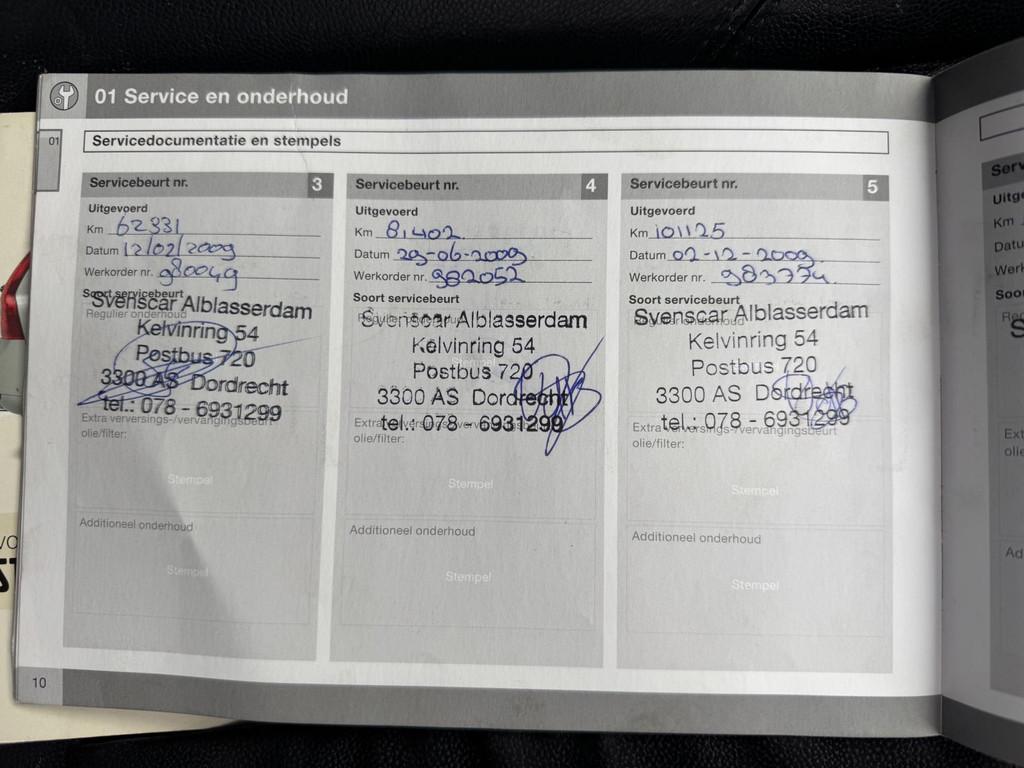 01 Service en onderhoud
01
Servicedocumentatie en stempels
Servicebeurt nr. 3
Uitgevoerd
Km 62331
Datum 12/02/2009
Werkorder nr. 980049
Soort servicebeurt
Regulier onderhoud
Svenscar Alblasserdam
Kelvinring 54
Postbus 720
3300 AS Dordrecht
tel.: 078 - 6931299
Extra verversings-/vervangingsbeurt
olie/filter:
Stempel
Additioneel onderhoud
Stempel
Servicebeurt nr. 4
Uitgevoerd
Km 81402
Datum 29-06-2009
Werkorder nr. 982052
Soort servicebeurt
Regulier onderhoud
Svenscar Alblasserdam
Kelvinring 54
Stempel
Postbus 720
3300 AS Dordrecht
tel.: 078 - 6931299
Extra verversings-/vervangingsbeurt
olie/filter:
Stempel
Additioneel onderhoud
Stempel
Servicebeurt nr. 5
Uitgevoerd
Km 101125
Datum 02-12-2009
Werkorder nr. 983774
Soort servicebeurt
Regulier onderhoud
Svenscar Alblasserdam
Kelvinring 54
Postbus 720
3300 AS Dordrecht
tel.: 078 - 6931299
Extra verversings-/vervangingsbeurt
olie/filter:
Stempel
Additioneel onderhoud
Stempel
10